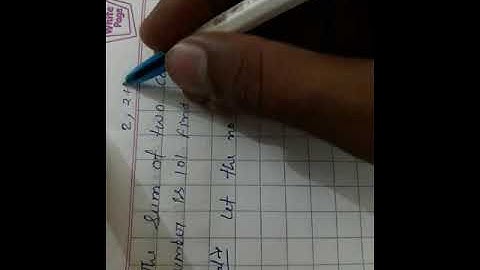 White
Page
2, 2+
The Sum of two
number is 101 Find
Let the no